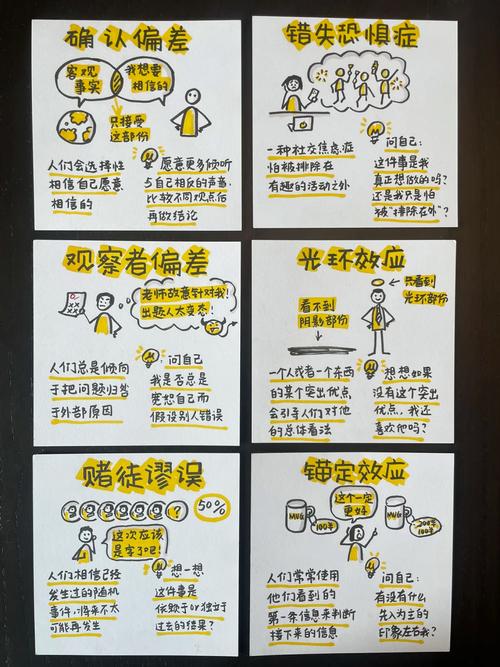 确认偏差
客观
事实
我想要
相信的
只接受
这部份
人们会选择性
相信自己愿意
相信的
愿意更多倾听
与自己相反的声音,
比较不同观点后
再做结论
错失恐惧症
一种社交焦虑症
怕被排除在
有趣的活动之外
问自己:
这件事是我
真正想做的吗?
还是我只是怕
被"排除在外"?
观察者偏差
老师故意针对我!
出题人太变态!
人们总是倾向
于把问题归咎
于外部原因
问自己
我是否总是
宽恕自己而
假设别人错误
光环效应
只看到
光环部份
看不到
阴影部份
一个人或者一个东西
的某个突出优点
会引导人们对他
的总体看法
想想如果
没有这个突出
优点,我还
喜欢他吗?
赌徒谬误
?
50%
这次应该
是字了吧!
人们相信已经
发生过的随机
事件,将来不太
可能再发生
想一想
这件事是
依赖于or独立于
过去的结果?
锚定效应
MUG
100羊
这个一定
更好
MUG
200羊
100羊
人们常常使用
他们看到的
第一条信息来判断
接下来的信息
问自己:
有没有什么
先入为主的
印象左右我?